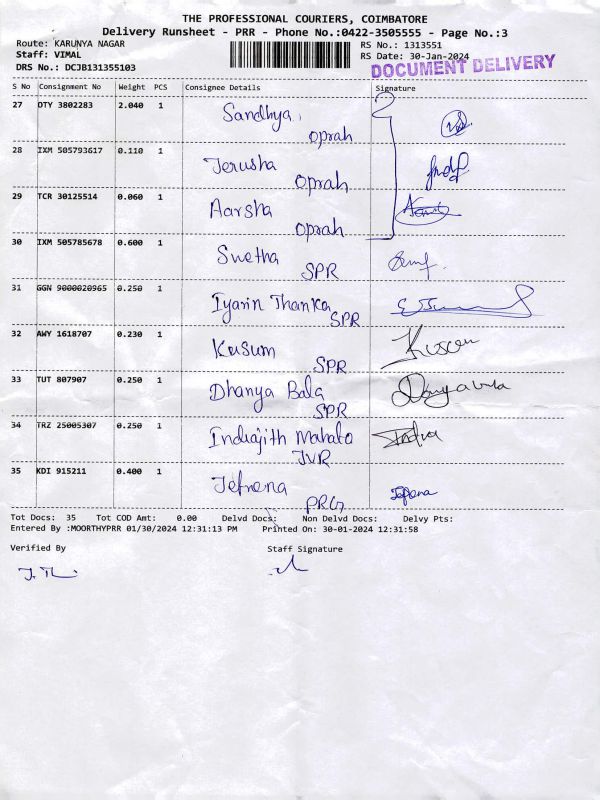 THE PROFESSIONAL COURIERS, COIMBATORE
Delivery Runsheet - PRR - Phone No.:0422-3505555 - Page No.:3
Route: KARUNYA NAGAR RS No.: 1313551
Staff: VIMAL RS Date: 30-Jan-2024
DRS No.: DCJB131355103 DOCUMENT DELIVERY
S No Consignment No Weight PCS Consignee Details Signature
27 OTY 3802283 2.040 1 Sandhya
Oprah
28 IXM 505793617 0.110 1 Jerusha
Oprah
29 TCR 30125514 0.060 1 Aarsha
Oprah
30 IXM 505785678 0.600 1 Swetha
SPR
31 GGN 9000020965 0.250 1 Iyarin Thanka
SPR
32 AWY 1618707 0.230 1 Kusum
SPR
33 TUT 807907 0.250 1 Dhanya Bala
SPR
34 TRZ 25005307 0.250 1 Indrajith Mahato
JVR
35 KDI 915211 0.400 1 Jefrena Jefrena
PRG
Tot Docs: 35 Tot COD Amt: 0.00 Delvd Docs: Non Delvd Docs: Delvy Pts:
Entered By :MOORTHYPRR 01/30/2024 12:31:13 PM Printed On: 30-01-2024 12:31:58
Verified By Staff Signature